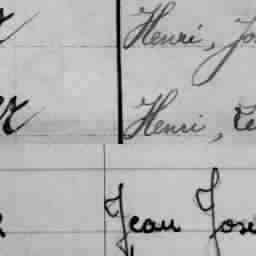 Henri, Jo
Henri, Te
Jean Jose